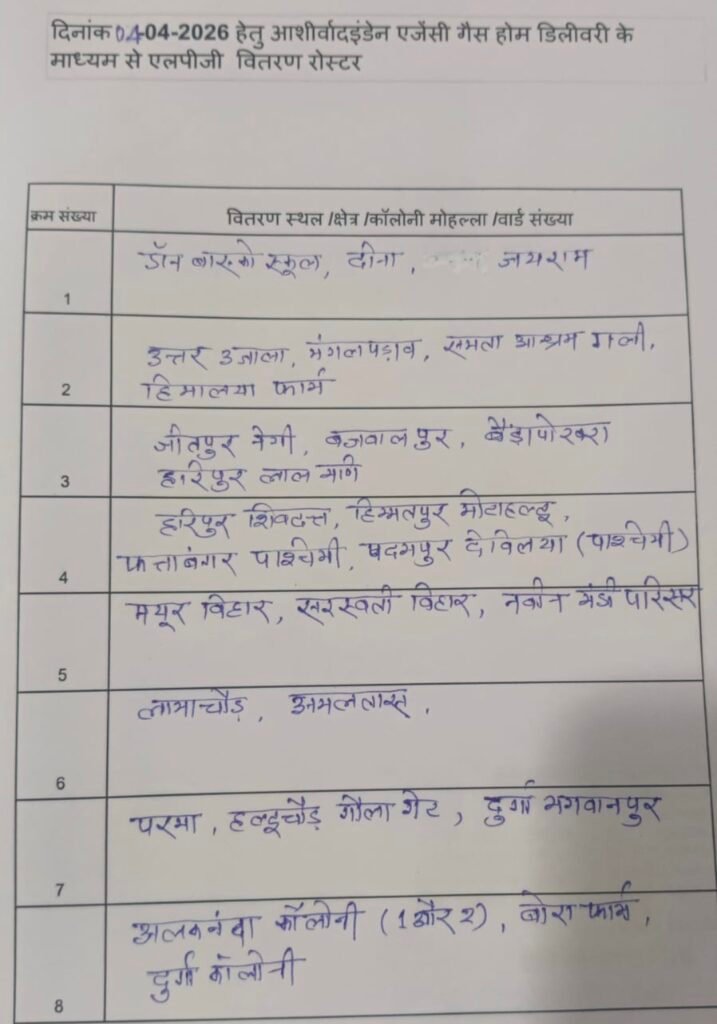 दिनांक 04-04-2026 हेतु आशीर्वादइंडेन एजेंसी गैस होम डिलीवरी के
माध्यम से एलपीजी वितरण रोस्टर
क्रम संख्या वितरण स्थल /क्षेत्र /कॉलोनी मोहल्ला /वार्ड संख्या
1 डॉन बास्को स्कूल, दीना, जयराम
2 उत्तर उजाला, मंगलपड़ाव, समता आश्रम गली,
हिमालया फार्म
3 जीतपुर नेगी, बजवालपुर, बैड़ापोखरा
हरिपुर लालमणि
4 हरिपुर शिवदत्त, हिम्मतपुर मोटाहल्दू,
फत्ताबंगर पाश्चिमी, पदमपुर देवलिया (पाश्चिमी)
5 मयूर विहार, सरस्वती विहार, नवीन मंडी परिसर
6 लामाचौड़, अमलतास,
7 परमा, हल्दूचौड़ गौला गेट, दुर्गा भगवानपुर
8 अलकनंदा कॉलोनी (1 और 2), बोरा फार्म,
दुर्गा कॉलोनी